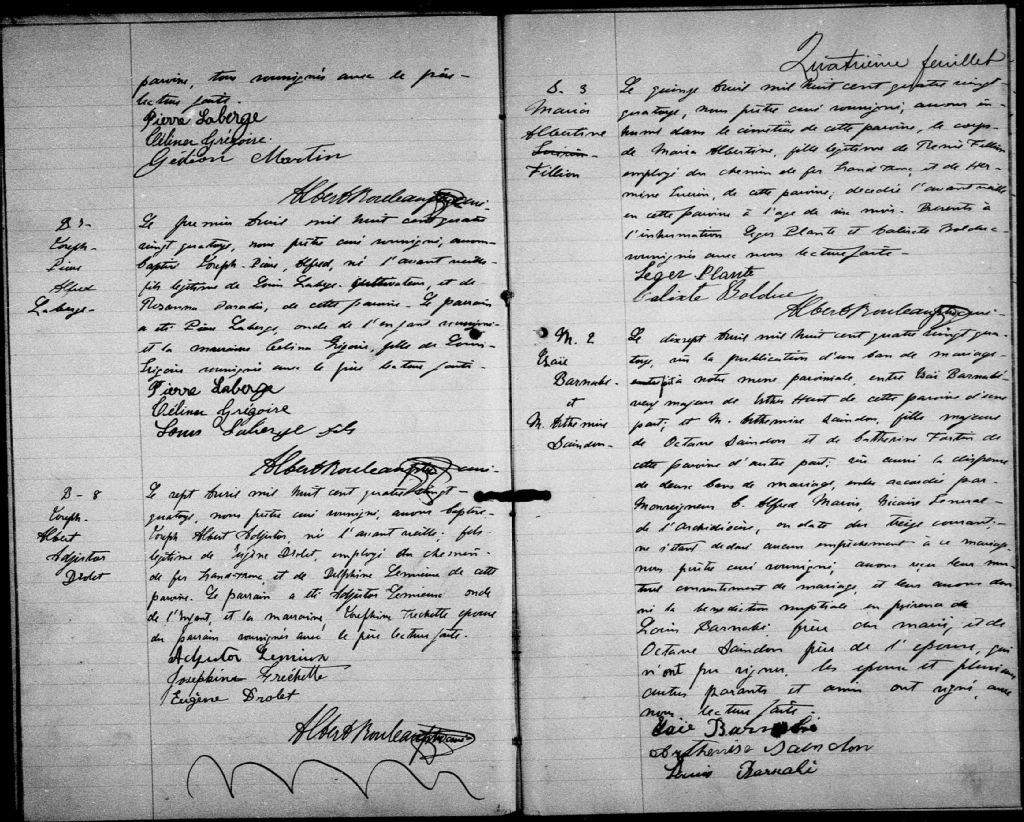 paroisse, tous soussignés avec le père
lecture faite.
Pierre Laberge
Célina Grégoire
Gédéon Martin
Albert Rouleau ptre curé
B 7
Joseph
Pierre
Alfred
Laberge
Le premier Avril mil huit cent quatre
vingt quatorze, nous prêtre curé soussigné, avons
baptisé Joseph Pierre, Alfred, né l'avant veille
fils légitime de Louis Laberge cultivateur, et de
Rosanna Paradis, de cette paroisse. Le parrain
a été Pierre Laberge, oncle de l'enfant soussigné
et la marraine Celina Grégoire, fille de Louis
Grégoire soussignés avec le père lecture faite.
Pierre Laberge
Célina Grégoire
Louis Laberge fils
Albert Rouleau ptre curé
B - 8
Joseph
Albert
Adjutor
Drolet
Le sept Avril mil huit cent quatre vingt
quatorze, nous prêtre curé soussigné, avons baptisé
Joseph Albert Adjutor, né l'avant veille, fils
légitime de Eugène Drolet, employé du chemin
de fer Grand-tronc, et de Delphine Lemieux de cette
paroisse. Le parrain a été Adjutor Lemieux oncle
de l'enfant, et la marraine, Josephine Frechette épouse
du parrain soussignés avec le père lecture faite.
Adjutor Lemieux
Josephine Frechette
Eugène Drolet
Albert Rouleau ptre curé
Quatrième feuillet
S. 3
Maria
Albertine
Fillion
Le quinze Avril mil huit cent quatre vingt
quatorze, nous prêtre curé soussigné, avons in-
humé dans le cimetière de cette paroisse, le corps
de Maria Albertine, fille légitime de Rémi Fillion
employé du chemin de fer Grand Tronc et de Her-
mine de cette paroisse, décédée l'avant veille
en cette paroisse à l'age de six mois. Présents à
l'inhumation Léger Plante et Calixte Bolduc
soussignés avec nous lecture faite.
Léger Plante
Calixte Bolduc
Albert Rouleau ptre curé
M. 2
Isaïe
Barnabé
et
M. Arthemise
Saindon
Le dixsept Avril mil huit cent quatre vingt qua-
torze, vu la publication d'un ban de mariage
faite à notre messe paroissiale, entre Isaïe Barnabé
veuf majeur de Esther Huot de cette paroisse d'une
part; et M. Arthemise Saindon, fille majeure
de Octave Saindon et de Catherine Fortin de
cette paroisse d'autre part; vu aussi la dispense
de deux bans de mariage, accordée par
Monseigneur C. Alfred Marois, Vicaire General
de l'Archidiocèse, en date du treize courant;
ne s'étant découvert aucun empêchement à ce mariage
nous prêtre curé soussigné, avons reçu leur mu-
tuel consentement de mariage, et leur avons don-
né la bénédiction nuptiale en présence de
Louis Barnabé, frère du marié, et de
Octave Saindon frère de l'épouse, qui
n'ont pu signer. Les époux et plusieurs
autres parents et amis ont signé avec
nous lecture faite.
Isaïe Barnabé
Arthemise Saindon
Louis Barnabé